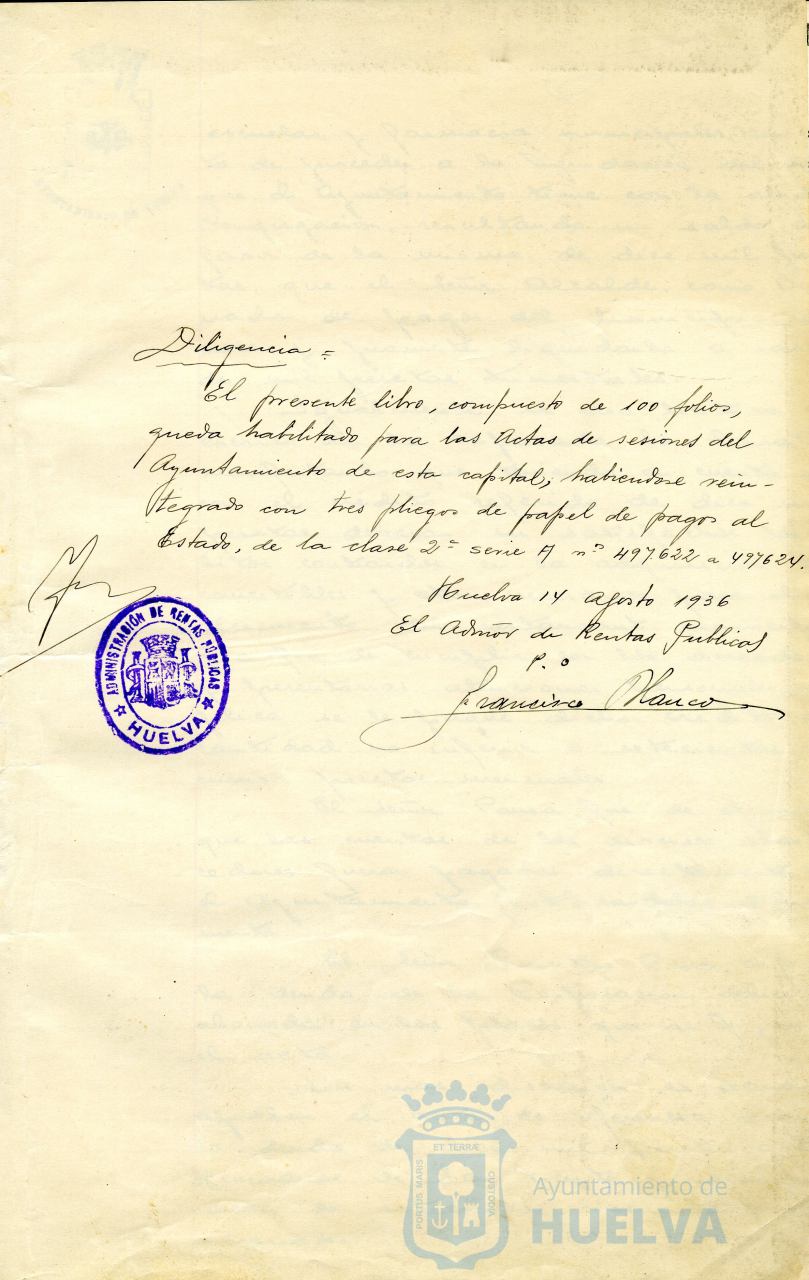 Diligencia =
El presente libro, compuesto de 100 folios,
queda habilitado para las Actas de sesiones del
Ayuntamiento de esta capital; habiendose rein-
tegrado con tres pliegos de papel de pagos al
Estado, de la clase 2ª serie A nº 497.622 a 497624.
Huelva 14 Agosto 1936
El Admor de Rentas Publicas
P.O
Francisco Blanco
ADMINISTRACIÓN DE RENTAS PÚBLICAS
HUELVA
ET TERRÆ
PORTUS MARIS
CUSTODIA
Ayuntamiento de
HUELVA